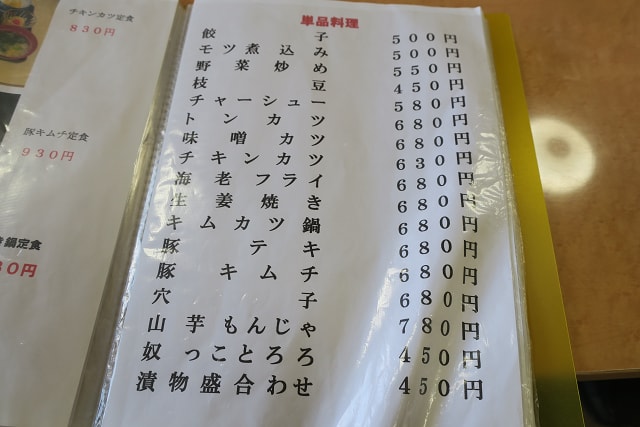 チキンカツ定食
830円
豚キムチ定食
930円
鍋定食
80円
単品料理
餃子 500円
モツ煮込み 500円
野菜炒め 550円
枝豆 450円
チャーシュー 580円
トンカツ 680円
味噌カツ 680円
チキンカツ 630円
海老フライ 680円
生姜焼き 680円
キムカツ鍋 680円
豚テキ 680円
豚キムチ 680円
穴子 680円
山芋もんじゃ 780円
奴っことろろ 450円
漬物盛合わせ 450円